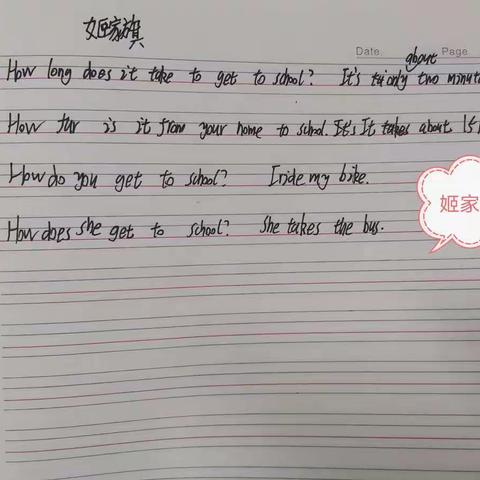 姬家旗
Date. Page
about
How long does it take to get to school? It's only two minut
How far is it from your home to school. It's It takes about 15
How do you get to school? I ride my bike.
姬家
How does she get to school? She takes the bus.